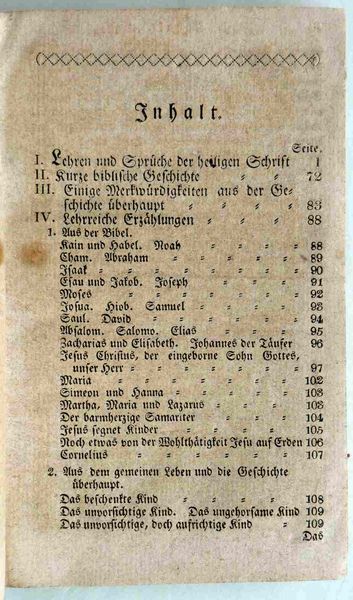 Inhalt.
Seite.
I. Lehren und Sprüche der heiligen Schrift 1
II. Kurze biblische Geschichte = = 72
III. Einige Merkwürdigkeiten aus der Ge-
schichte überhaupt = = = = 83
IV. Lehrreiche Erzählungen = = = 88
1. Aus der Bibel.
Kain und Habel. Noah = = = = 88
Cham. Abraham = = = = = 89
Isaak = = = = = = 90
Esau und Jakob. Joseph = = = 91
Moses = = = = = = 92
Josua. Hiob. Samuel = = = = 93
Saul. David = = = = = 94
Absalom. Salomo. Elias = = = 95
Zacharias und Elisabeth. Johannes der Täufer 96
Jesus Christus, der eingeborne Sohn Gottes,
unser Herr = = = = = 97
Maria = = = = = = 102
Simeon und Hanna = = = = 103
Martha, Maria und Lazarus = = = 103
Der barmherzige Samariter = = = 104
Jesus segnet Kinder = = = = 105
Noch etwas von der Wohlthätigkeit Jesu auf Erden 106
Cornelius = = = = = 107
2. Aus dem gemeinen Leben und die Geschichte
überhaupt.
Das beschenkte Kind = = = = 108
Das unvorsichtige Kind. Das ungehorsame Kind 109
Das unvorsichtige, doch aufrichtige Kind = 109
Das